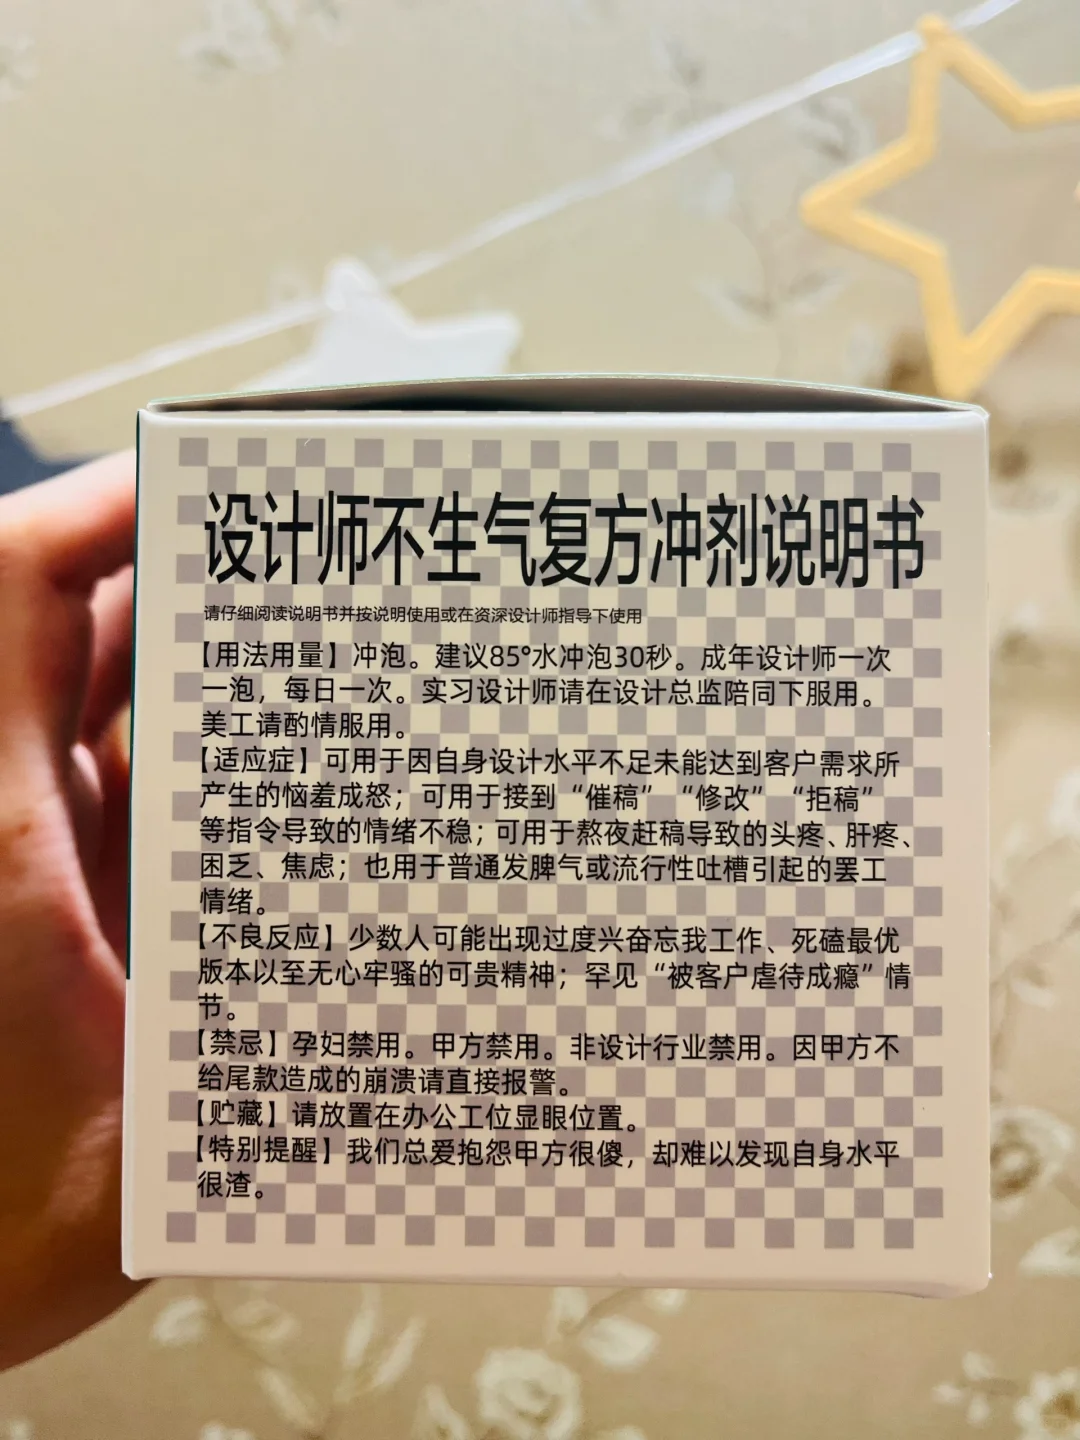 设计师不生气复方冲剂说明书
请仔细阅读说明书并按说明使用或在资深设计师指导下使用
【用法用量】冲泡。建议85°水冲泡30秒。成年设计师一次
一泡，每日一次。实习设计师请在设计总监陪同下服用。
美工请酌情服用。
【适应症】可用于因自身设计水平不足未能达到客户需求所
产生的恼羞成怒；可用于接到“催稿”“修改”“拒稿”
等指令导致的情绪不稳；可用于熬夜赶稿导致的头疼、肝疼、
困乏、焦虑；也用于普通发脾气或流行性吐槽引起的罢工
情绪。
【不良反应】少数人可能出现过度兴奋忘我工作、死磕最优
版本以至无心牢骚的可贵精神；罕见“被客户虐待成瘾”情
节。
【禁忌】孕妇禁用。甲方禁用。非设计行业禁用。因甲方不
给尾款造成的崩溃请直接报警。
【贮藏】请放置在办公工位显眼位置。
【特别提醒】我们总爱抱怨甲方很傻，却难以发现自身水平
很渣。